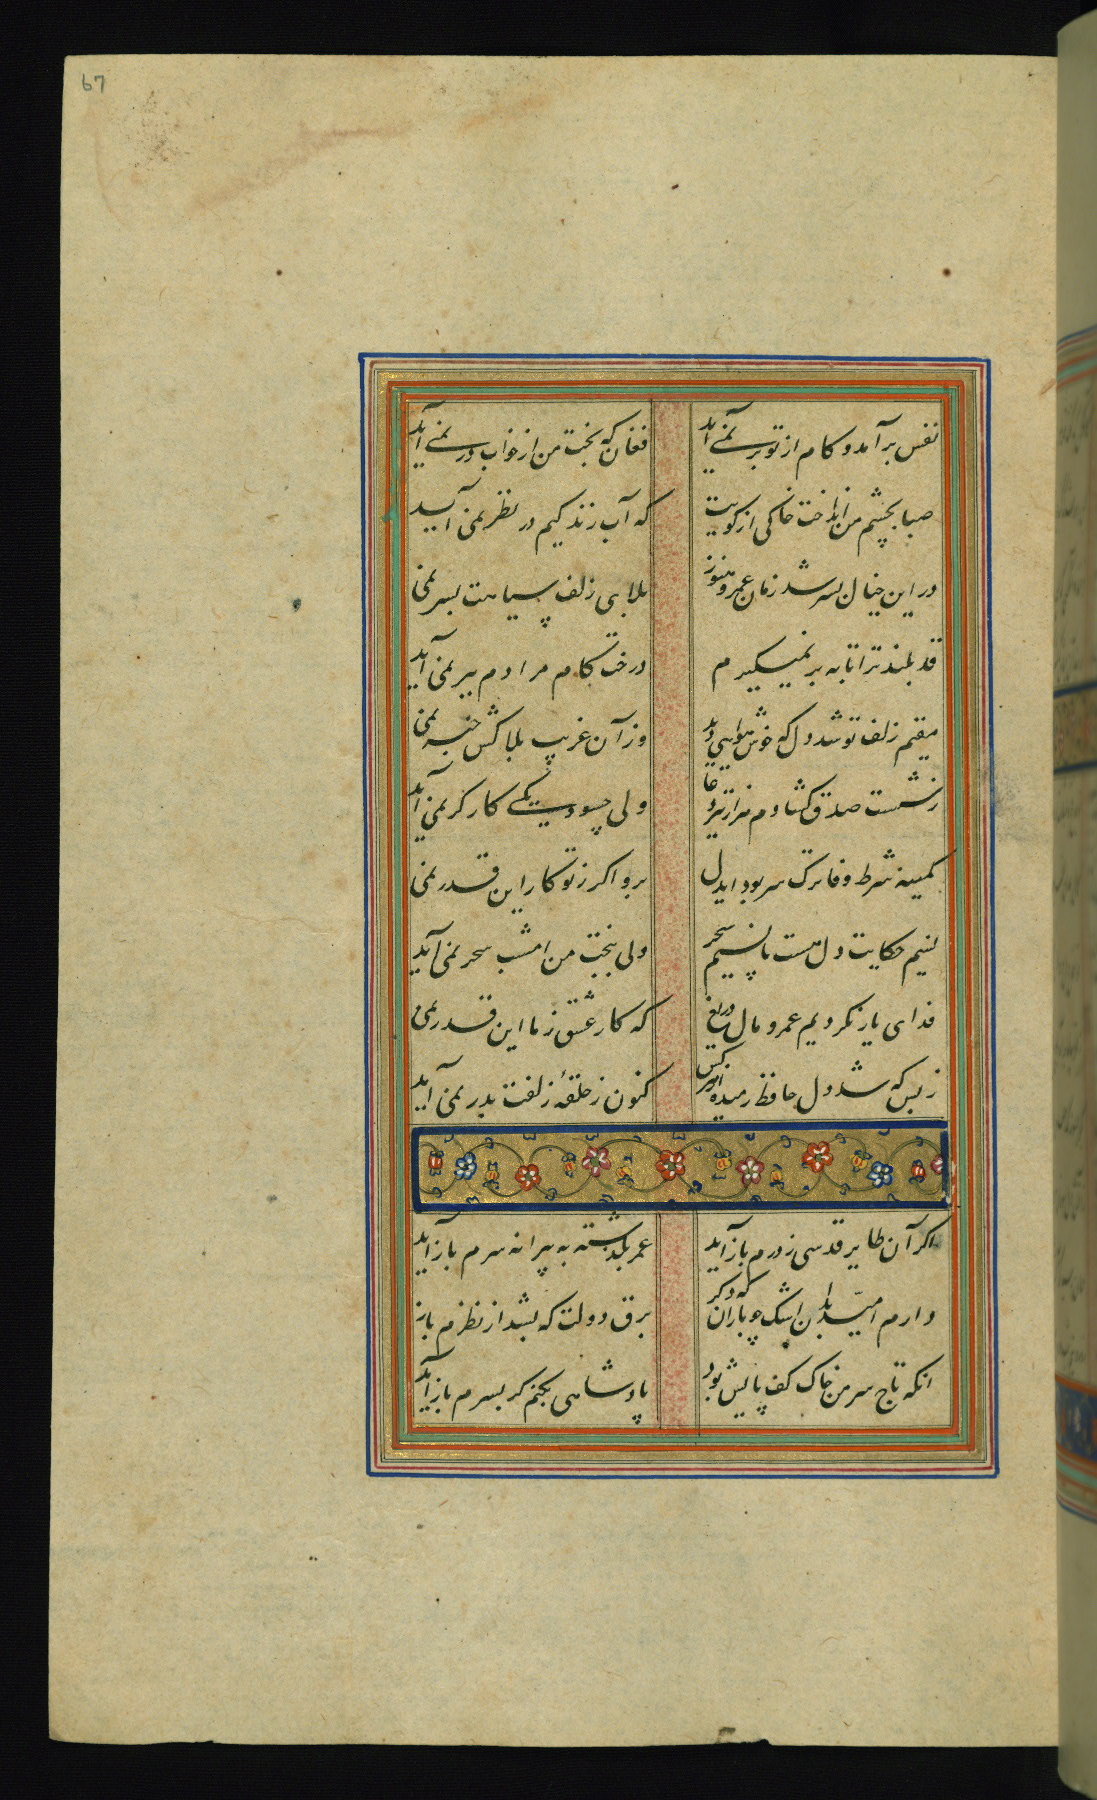 67
نفس برآمد و کام از تو بر نمی آید فغان که بخت من از خواب در نمی آید
صبا بچشم من انداخت خاکی از کویت که آب زندگیم در نظر نمی آید
در این خیال بسر شد زمان عمر و هنوز بلای زلف سیاهت بسر نمی
قد بلند ترا تا به بر نمیگیرم درخت کام مرادم ببر نمی آید
مقیم زلف تو شد دل که خوش هوایی دید وز آن غریب بلاکش خبر نمی
ز شست صدق گشادم هزار تیر دعا ولی چه سود یکی کارگر نمی آید
کمینه شرط وفا ترک سر بود ایدل برو اگر ز تو کار این قدر نمی
بسیم حکایت دل هست با نسیم سحر ولی ببخت من امشب سحر نمی آید
فدای یار نکردیم عمر و مال دریغ که کار عشق ز ما این قدر نمی
ز بس که شد دل حافظ رمیده از هر کس کنون ز حلقهٔ زلفت بدر نمی آید
اگر آن طایر قدسی ز درم باز آید عمر بگذشته به پیرانه سرم باز آید
دارم امید بدان اشک چو باران که دگر برق دولت که بشد از نظرم باز
انکه تاج سر من خاک کف پایش بود پادشاهی بکنم گر بسرم باز آید